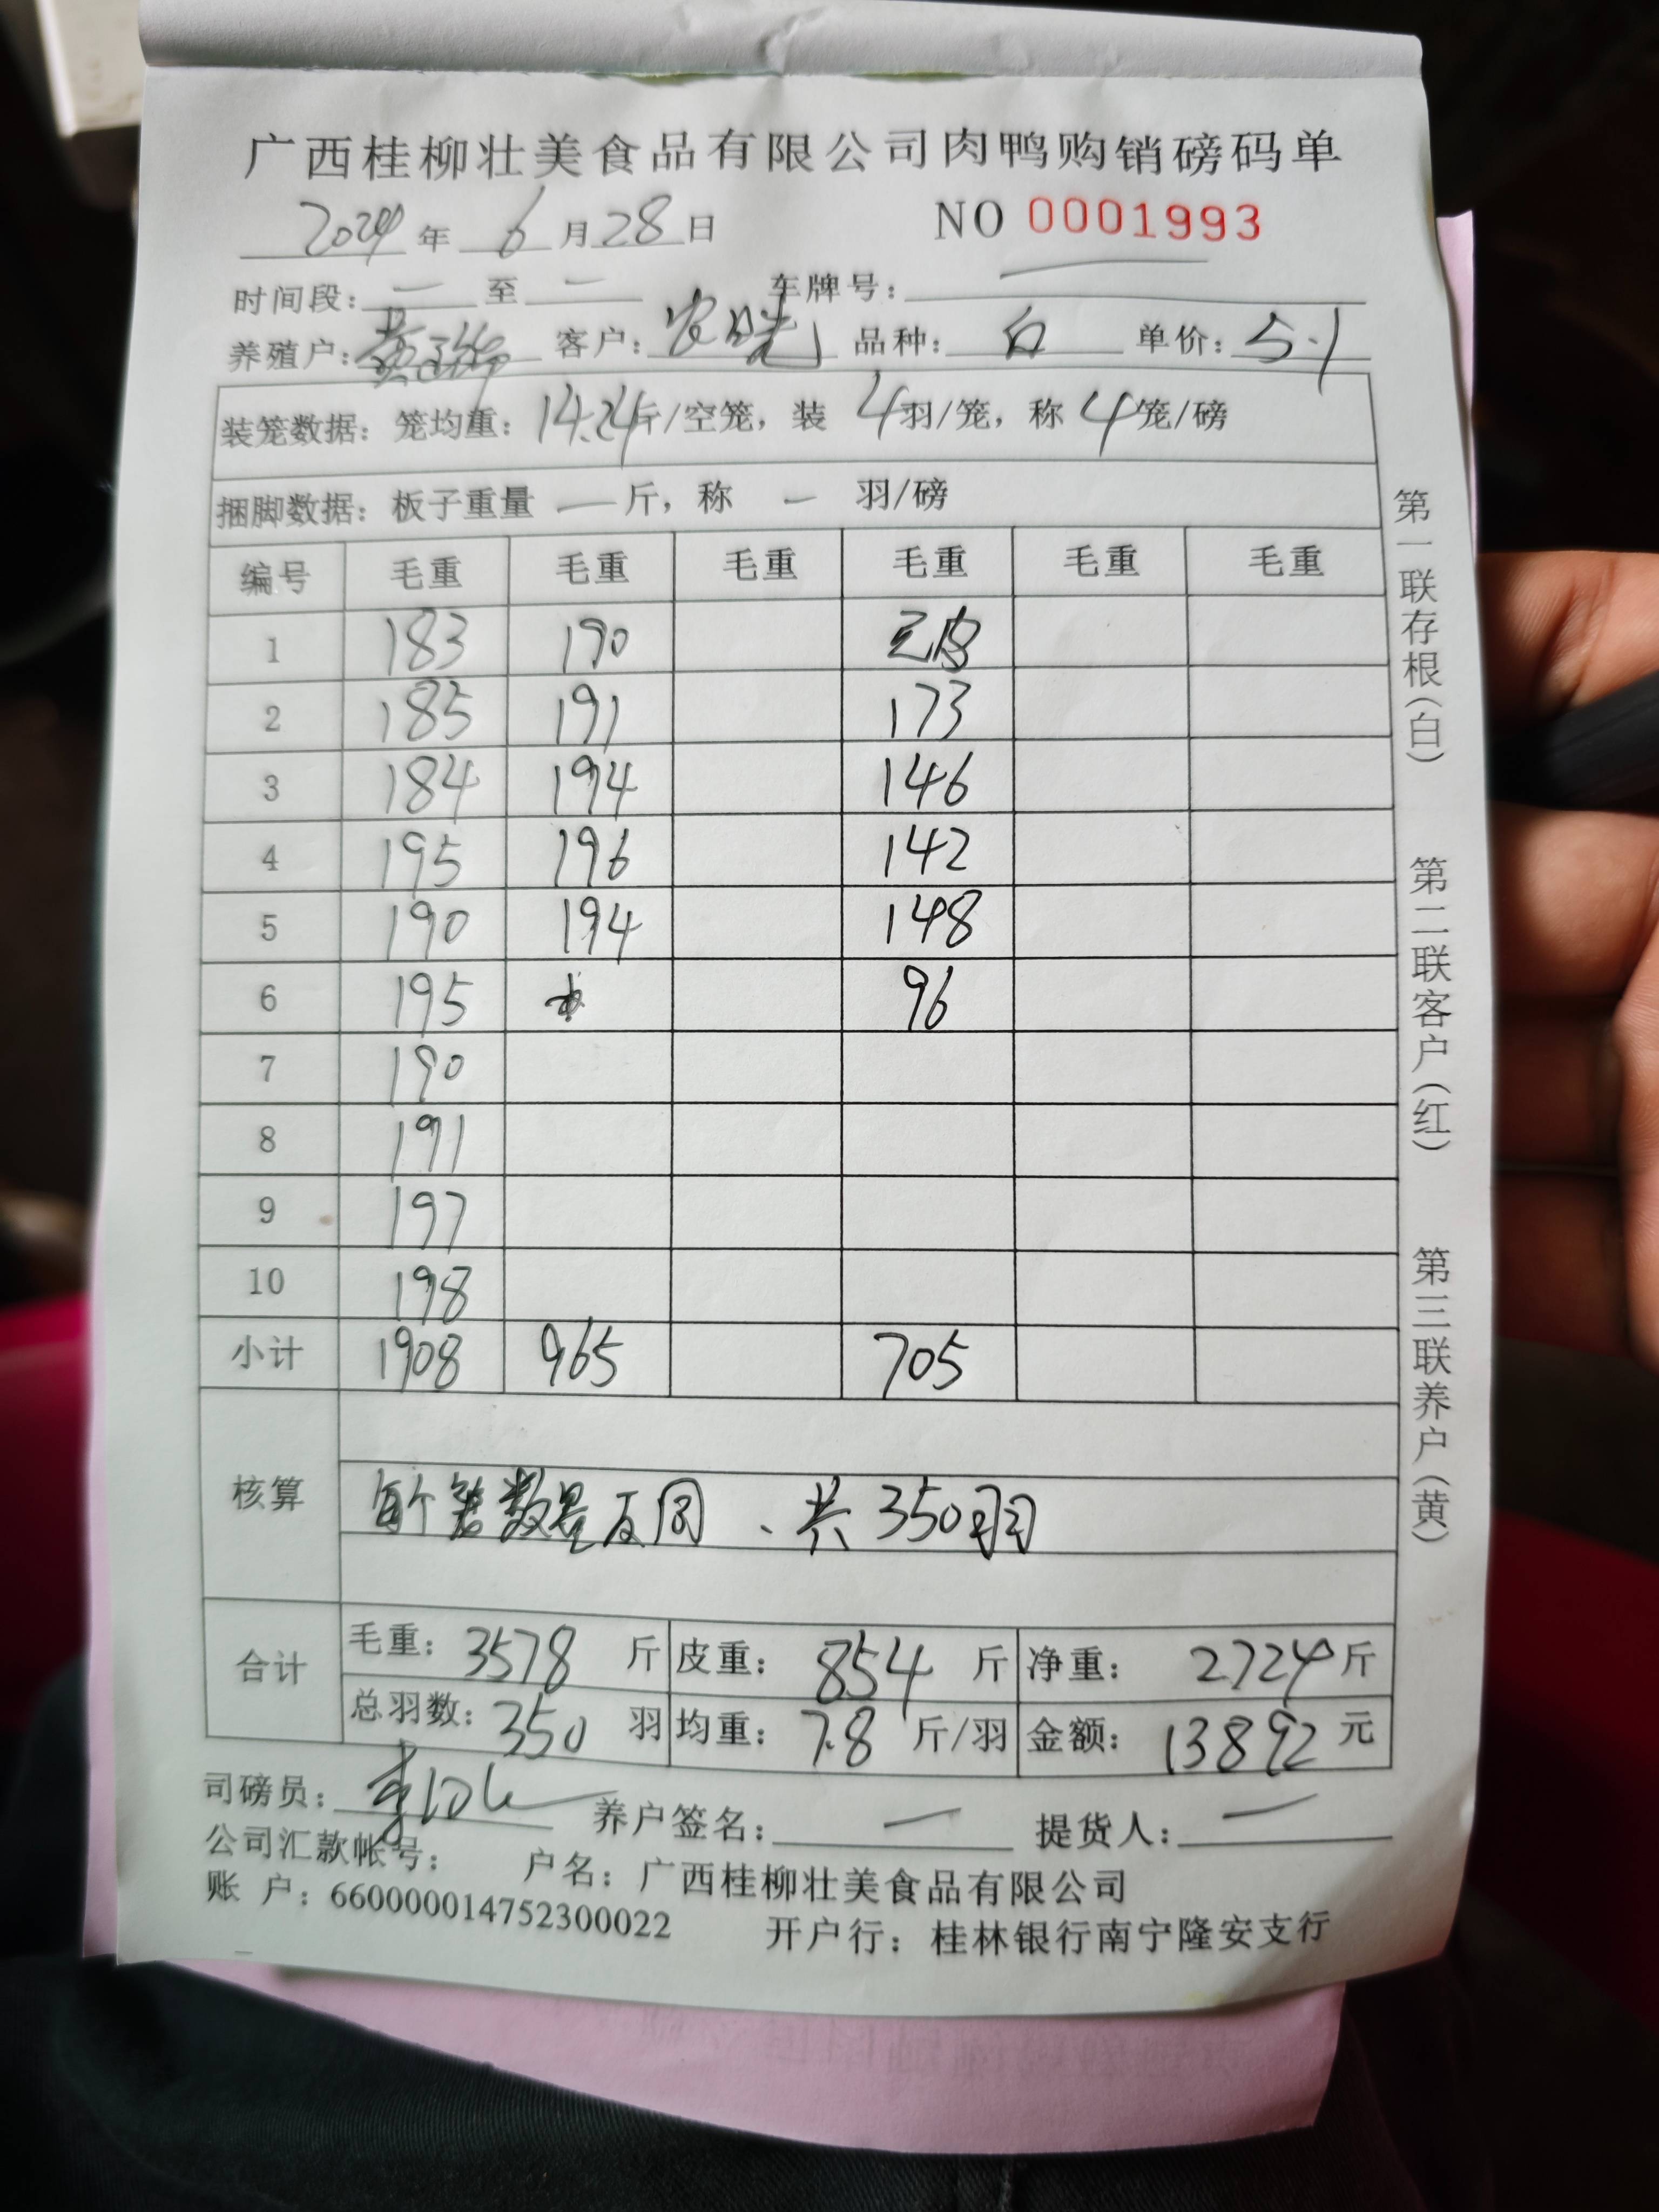 广西桂柳壮美食品有限公司肉鸭购销磅码单
2024年 6月28日 NO 0001993
时间段：— 至 — 车牌号：—
养殖户： 客户：农晓 品种：白 单价：5.1
装笼数据：笼均重：14.24斤/空笼，装 4羽/笼，称 4笼/磅
捆脚数据：板子重量 — 斤，称 — 羽/磅
编号 毛重 毛重 毛重 毛重 毛重 毛重
1 183 190
2 185 191 173
3 184 194 146
4 195 196 142
5 190 194 148
6 195 96
7 190
8 191
9 197
10 198
小计 1908 965 705
核算 每个笼数量不同、共350羽
合计 毛重：3578 斤 皮重：854 斤 净重：2724斤
总羽数：350 羽 均重：7.8 斤/羽 金额：13892 元
司磅员： 养户签名：— 提货人：—
公司汇款帐号： 户名：广西桂柳壮美食品有限公司
账 户：660000014752300022 开户行：桂林银行南宁隆安支行
第一联存根（白） 第二联客户（红） 第三联养户（黄）